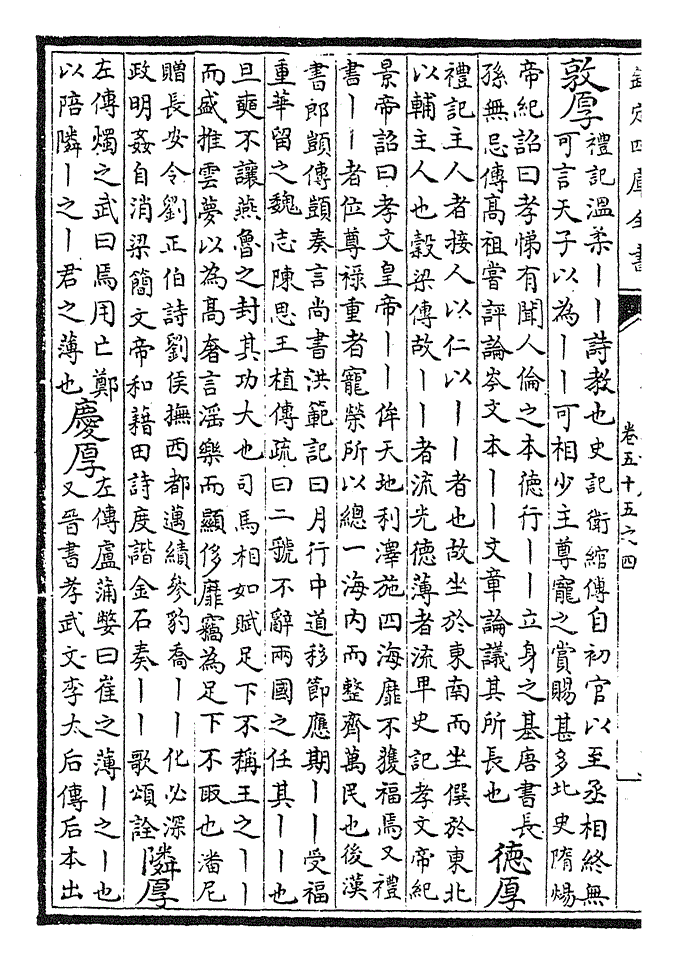 欽定四庫全書
卷五十五之四
敦厚
禮記溫柔丨丨詩教也史記衛綰傳自初官以至丞相終無
可言天子以為丨丨可相少主尊寵之賞賜甚多北史隋煬
帝紀詔曰孝悌有聞人倫之本德行丨丨立身之基唐書長
孫無忌傳髙祖嘗評論岑文本丨丨文章論議其所長也
德厚
禮記主人者接人以仁以丨丨者也故坐於東南而坐僎於東北
以輔主人也穀梁傳故丨丨者流光德薄者流卑史記孝文帝紀
景帝詔曰孝文皇帝丨丨侔天地利澤施四海靡不獲福焉又禮
書丨丨者位尊祿重者寵榮所以總一海內而整齊萬民也後漢
書郎顗傳顗奏言尚書洪範記曰月行中道移節應期丨丨受福
重華留之魏志陳思王植傳疏曰二虢不辭兩國之任其丨丨也
旦奭不讓燕魯之封其功大也司馬相如賦足下不稱王之丨丨
而盛推雲夢以為髙奢言淫樂而顯侈靡竊為足下不取也潘尼
贈長安令劉正伯詩劉侯撫西都邁績參豹喬丨丨化必深
政明姦自消梁簡文帝和藉田詩度諧金石奏丨丨歌頌詮
隣厚
左傳燭之武曰焉用亡鄭
以陪隣丨之丨君之薄也
慶厚
左傳盧蒲嫳曰崔之薄丨之丨也
又晉書孝武文李太后傳后本出